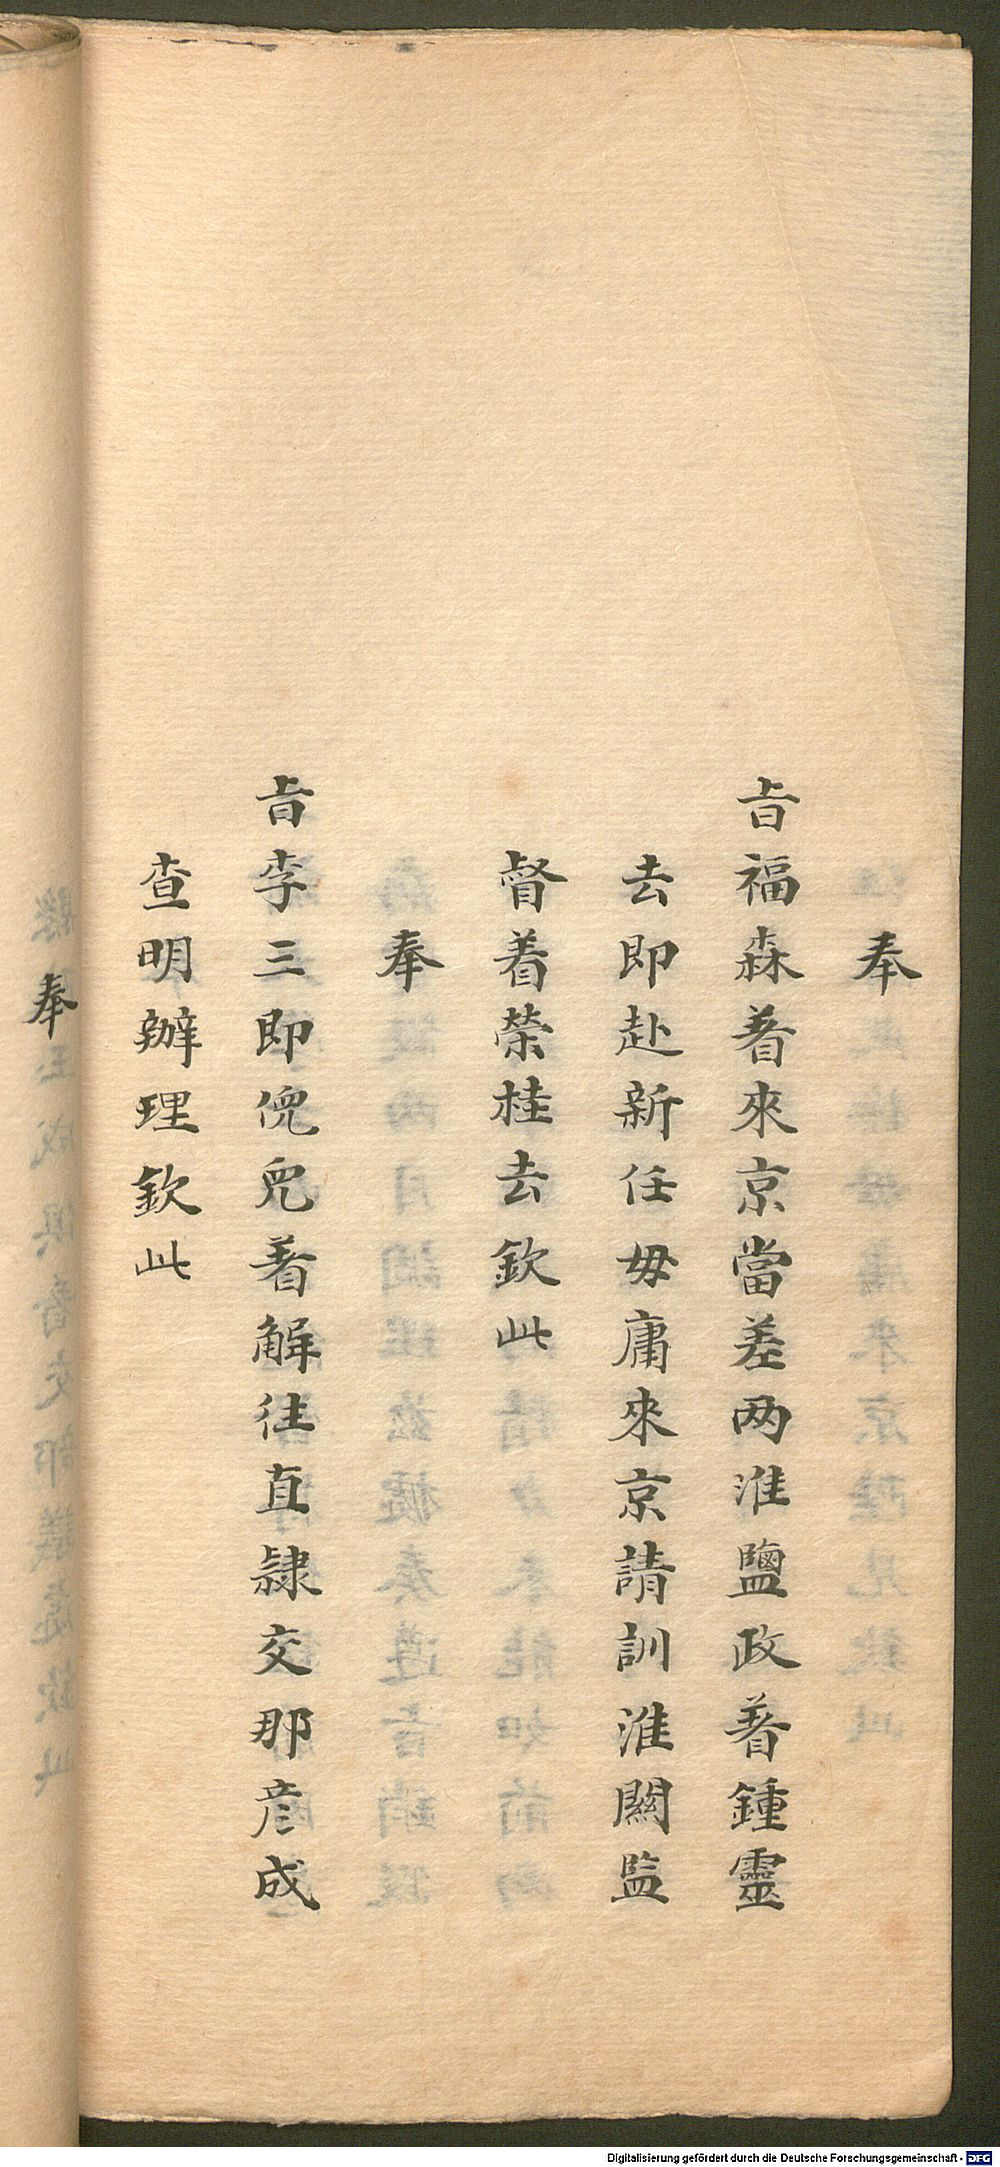 奉
旨福森着來京當差两淮鹽政着鍾靈
去即赴新任毋庸來京請訓淮關監
督着榮桂去欽此
奉
旨李三即倪兒着解往直隸交那彦成
查明辦理欽此
奉
Digitalisierung gefördert durch die Deutsche Forschungsgemeinschaft - DFG